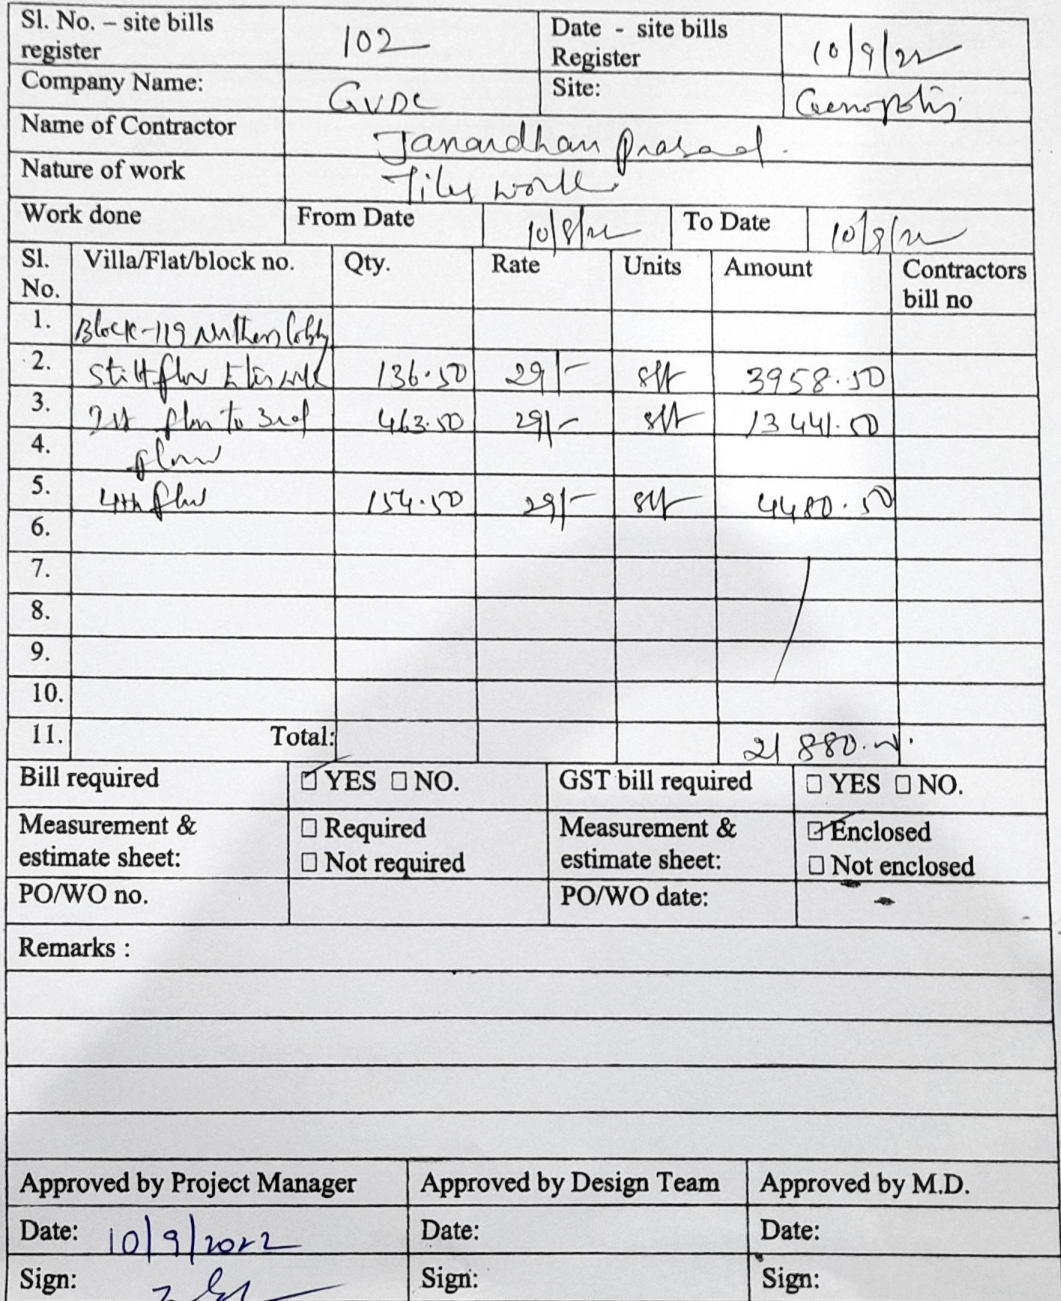 Sl. No. – site bills register 102 Date - site bills Register 10/9/22
Company Name: GVDC Site: Genopolis
Name of Contractor Janardhan Prasad.
Nature of work Tiles work.
Work done From Date 10/8/22 To Date 10/8/22
Sl. No. Villa/Flat/block no. Qty. Rate Units Amount Contractors bill no
1. Block-119 lobby
2. Stilt floor 136.50 29/- sft 3958.50
3. 1st floor to 3rd 463.50 29/- sft 13441.50
4. floor
5. 4th floor 154.50 29/- sft 4480.50
6.
7.
8.
9.
10.
11. Total: 21 880.
Bill required ☑ YES ☐ NO. GST bill required ☐ YES ☐ NO.
Measurement & estimate sheet: ☐ Required ☐ Not required Measurement & estimate sheet: ☑ Enclosed ☐ Not enclosed
PO/WO no. PO/WO date:
Remarks :
Approved by Project Manager Approved by Design Team Approved by M.D.
Date: 10/9/2022 Date: Date:
Sign: Sign: Sign: